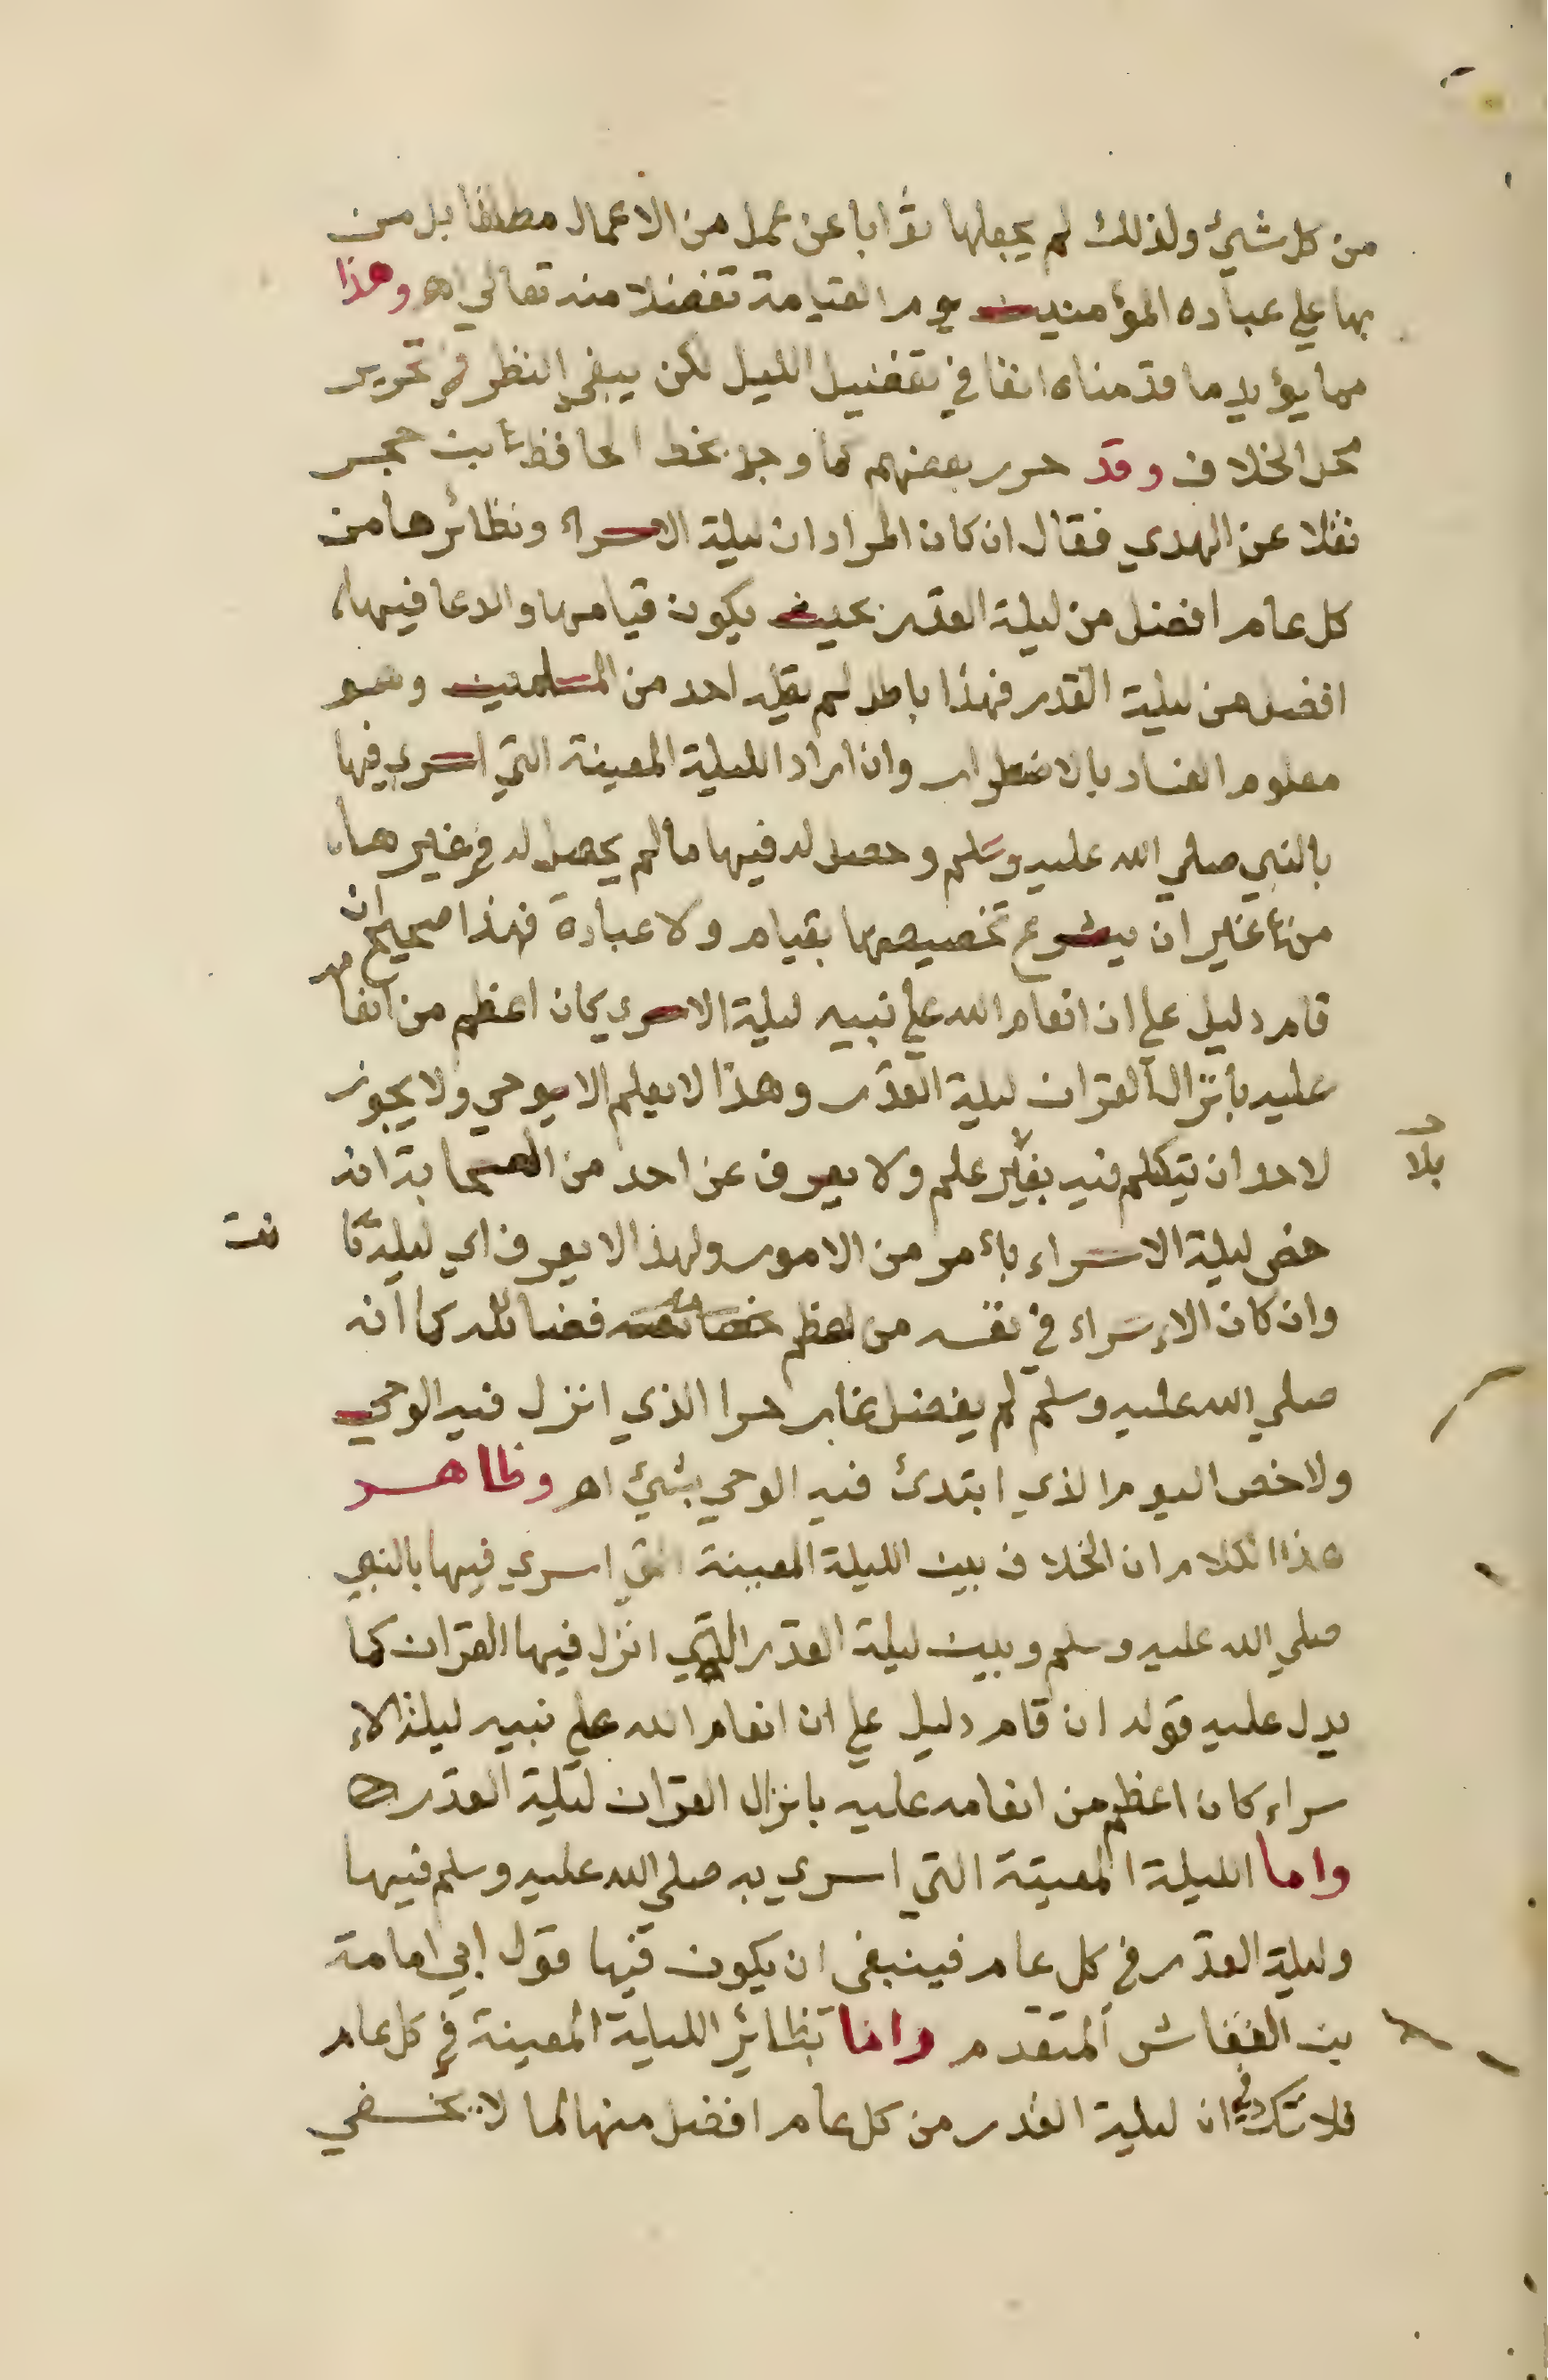 من كل شيئ ولذلك لم يجعلها ثوابا عن عمل من الاعمال مطلقا بل من
بها علي عباده المؤمنين يوم القيامة تفضلا منه تعالي اه وهذا
مما يؤيد ما قدمناه انفا في تفضيل الليل لكن يبقي النظر في تحرير
محل الخلاف وقد حرر بعضهم كما وجد بخط الحافظ بن حجر
نقلا عن الهدي فقال ان كان المراد ان ليلة الاسراء ونظائرها من
كل عام افضل من ليلة القدر بحيث يكون قيامها والدعا فيها
افضل من ليلة القدر فهذا باطل لم يقله احد من المسلمين وهو
معلوم الفساد بالاضطرار وان اراد الليلة المعينة التي اسري فيها
بالنبي صلي الله عليه وسلم وحصل له فيها مالم يحصل له في غيرها
من غير ان يشرع تخصيصها بقيام ولا عبادة فهذا صحيح ان
قام دليل علي ان انعام الله علي نبيه ليلة الاسري كان اعظم من انعامه
عليه بأنزال القران ليلة القدر وهذا لا يعلم الا بوحي ولا يجوز
لاحد ان يتكلم فيه بغير علم ولا يعرف عن احد من الصحابة انه
بلا
خص ليلة الاسراء بأمر من الامور ولهذا لا يعرف اي ليلة كا
نت
وان كان الإسراء في نفسه من اعظم فضائله كما أنه
صلي الله عليه وسلم لم يفضل غار حرا الذي انزل فيه الوحي
ولا خص اليوم الذي ابتدئ فيه الوحي بشيئ اه وظاهر
هذا الكلام ان الخلاف بين الليلة المعينة التي اسري فيها بالنبي
صلي الله عليه وسلم وبين ليلة القدر التي انزل فيها القران كما
يدل عليه قوله ان قام دليل علي ان انعام الله علي نبيه ليلة الإ
سراء كان اعظم من انعامه عليه بانزال القران ليلة القدر
واما الليلة المعينة التي اسري به صلي الله عليه وسلم فيها
وليلة القدر في كل عام فينبغي ان يكون فيها قول ابي امامة
بن النقاش المتقدم واما نظائر الليلة المعينة في كل عام
فلا شك في ان ليلة القدر من كل عام افضل منها كما لا يخفي